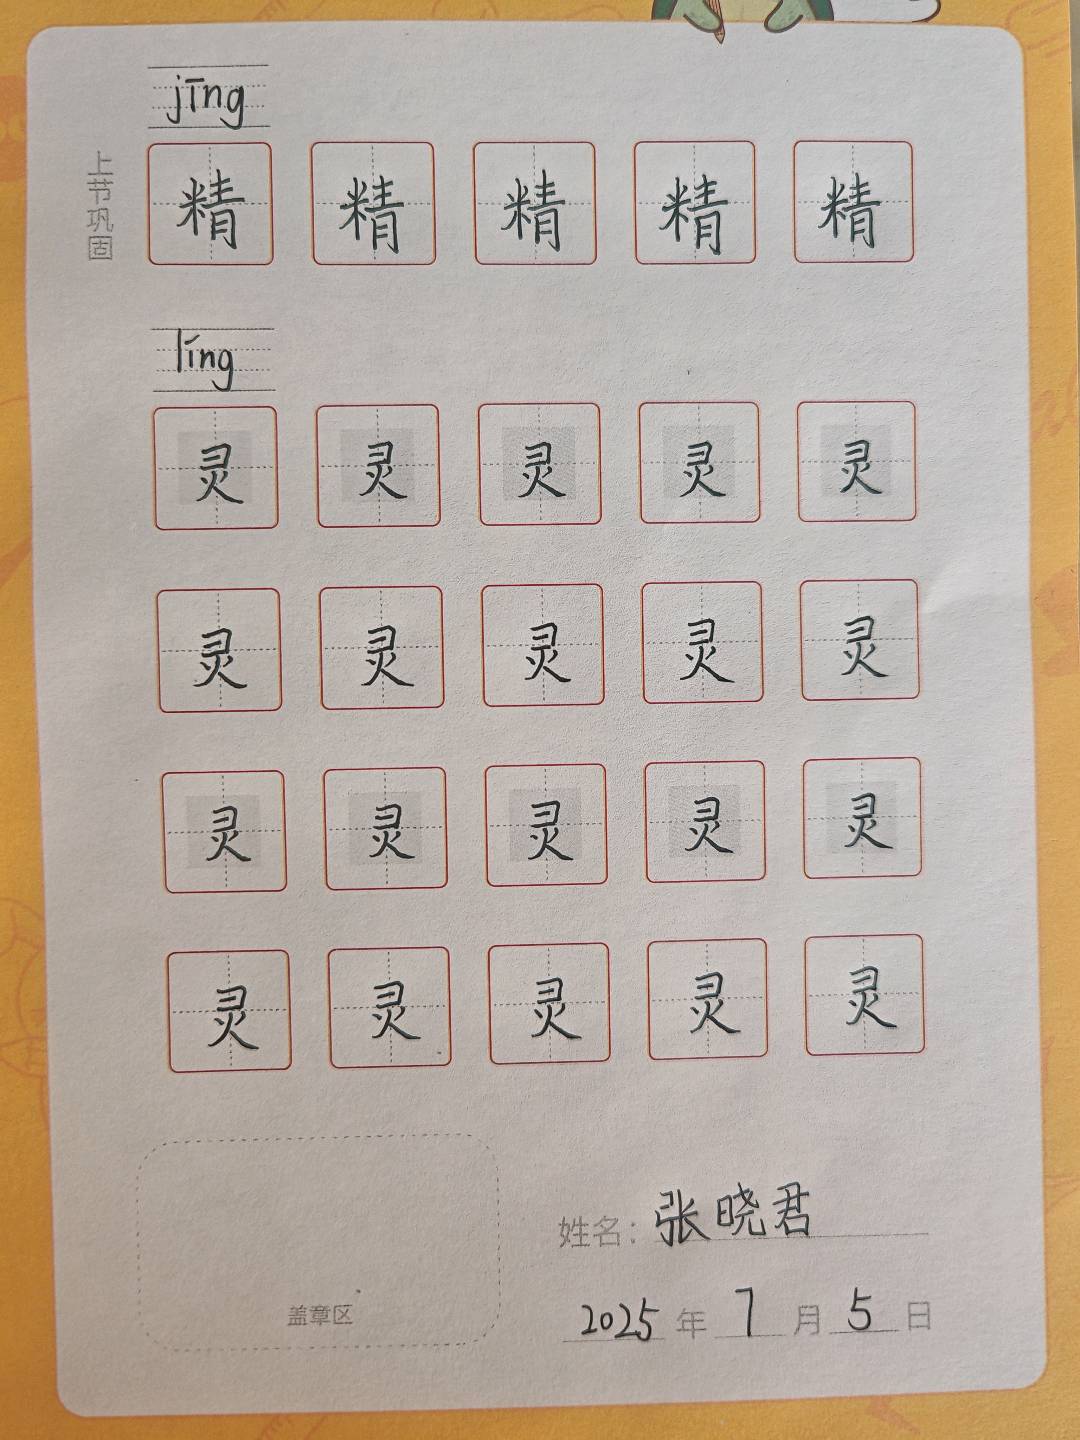 jīng
上节巩固
精 精 精 精 精
líng
灵 灵 灵 灵 灵
灵 灵 灵 灵 灵
灵 灵 灵 灵 灵
灵 灵 灵 灵 灵
姓名：张晓君
盖章区
2025年7月5日